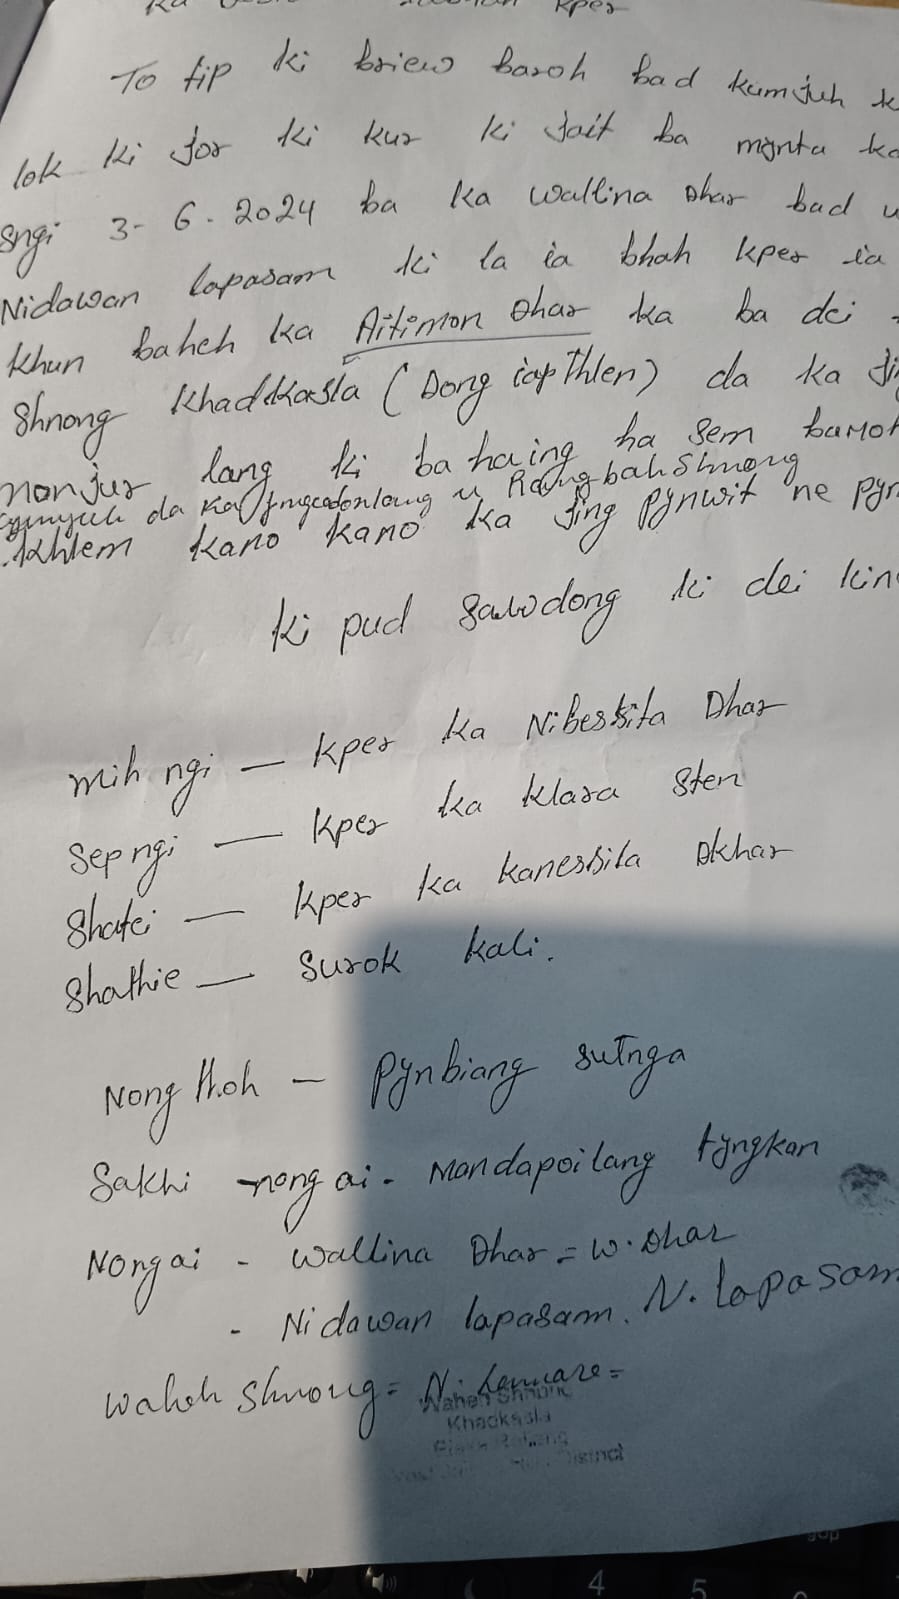 kper
To tip ki briew baroh bad kumjuh k
lok ki jor ki kur ki jait ba mynta ka
Sngi 3-6-2024 ba ka Wallina Dhar bad u
Nidawan lapasam ki la ia bhah kper ia
khun baheh ka Aitimon Dhar ka ba dei
Shnong Khadkasla (Dong iap Thlen) da ka ji
monjur lang ki ba haing ha sem baroh
da ka u Rangbah Shnong
khlem kano kano ka jing pynwit ne pyn
ki pud sawdong ki dei kin
mih ngi — kper ka Nibeskita Dhar
Sep ngi — kper ka klara Sten
Shatei — kper ka kaneskila Dkhar
Shathie — Surok kali.
Nong thoh - Pynbiang sutnga
Sakhi nong ai - Mandapoilang tyngkan
Nong ai - Wallina Dhar = W. Dhar
- Nidawan lapasam. N. lapasam
Waheh Shnong =
Waheh Shnong
Khadkasla
District
4 5